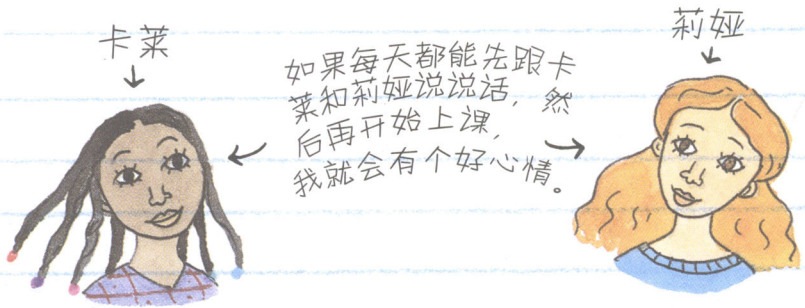 卡莱
莉娅
如果每天都能先跟卡
莱和莉娅说说话，然
后再开始上课，
我就会有个好心情。